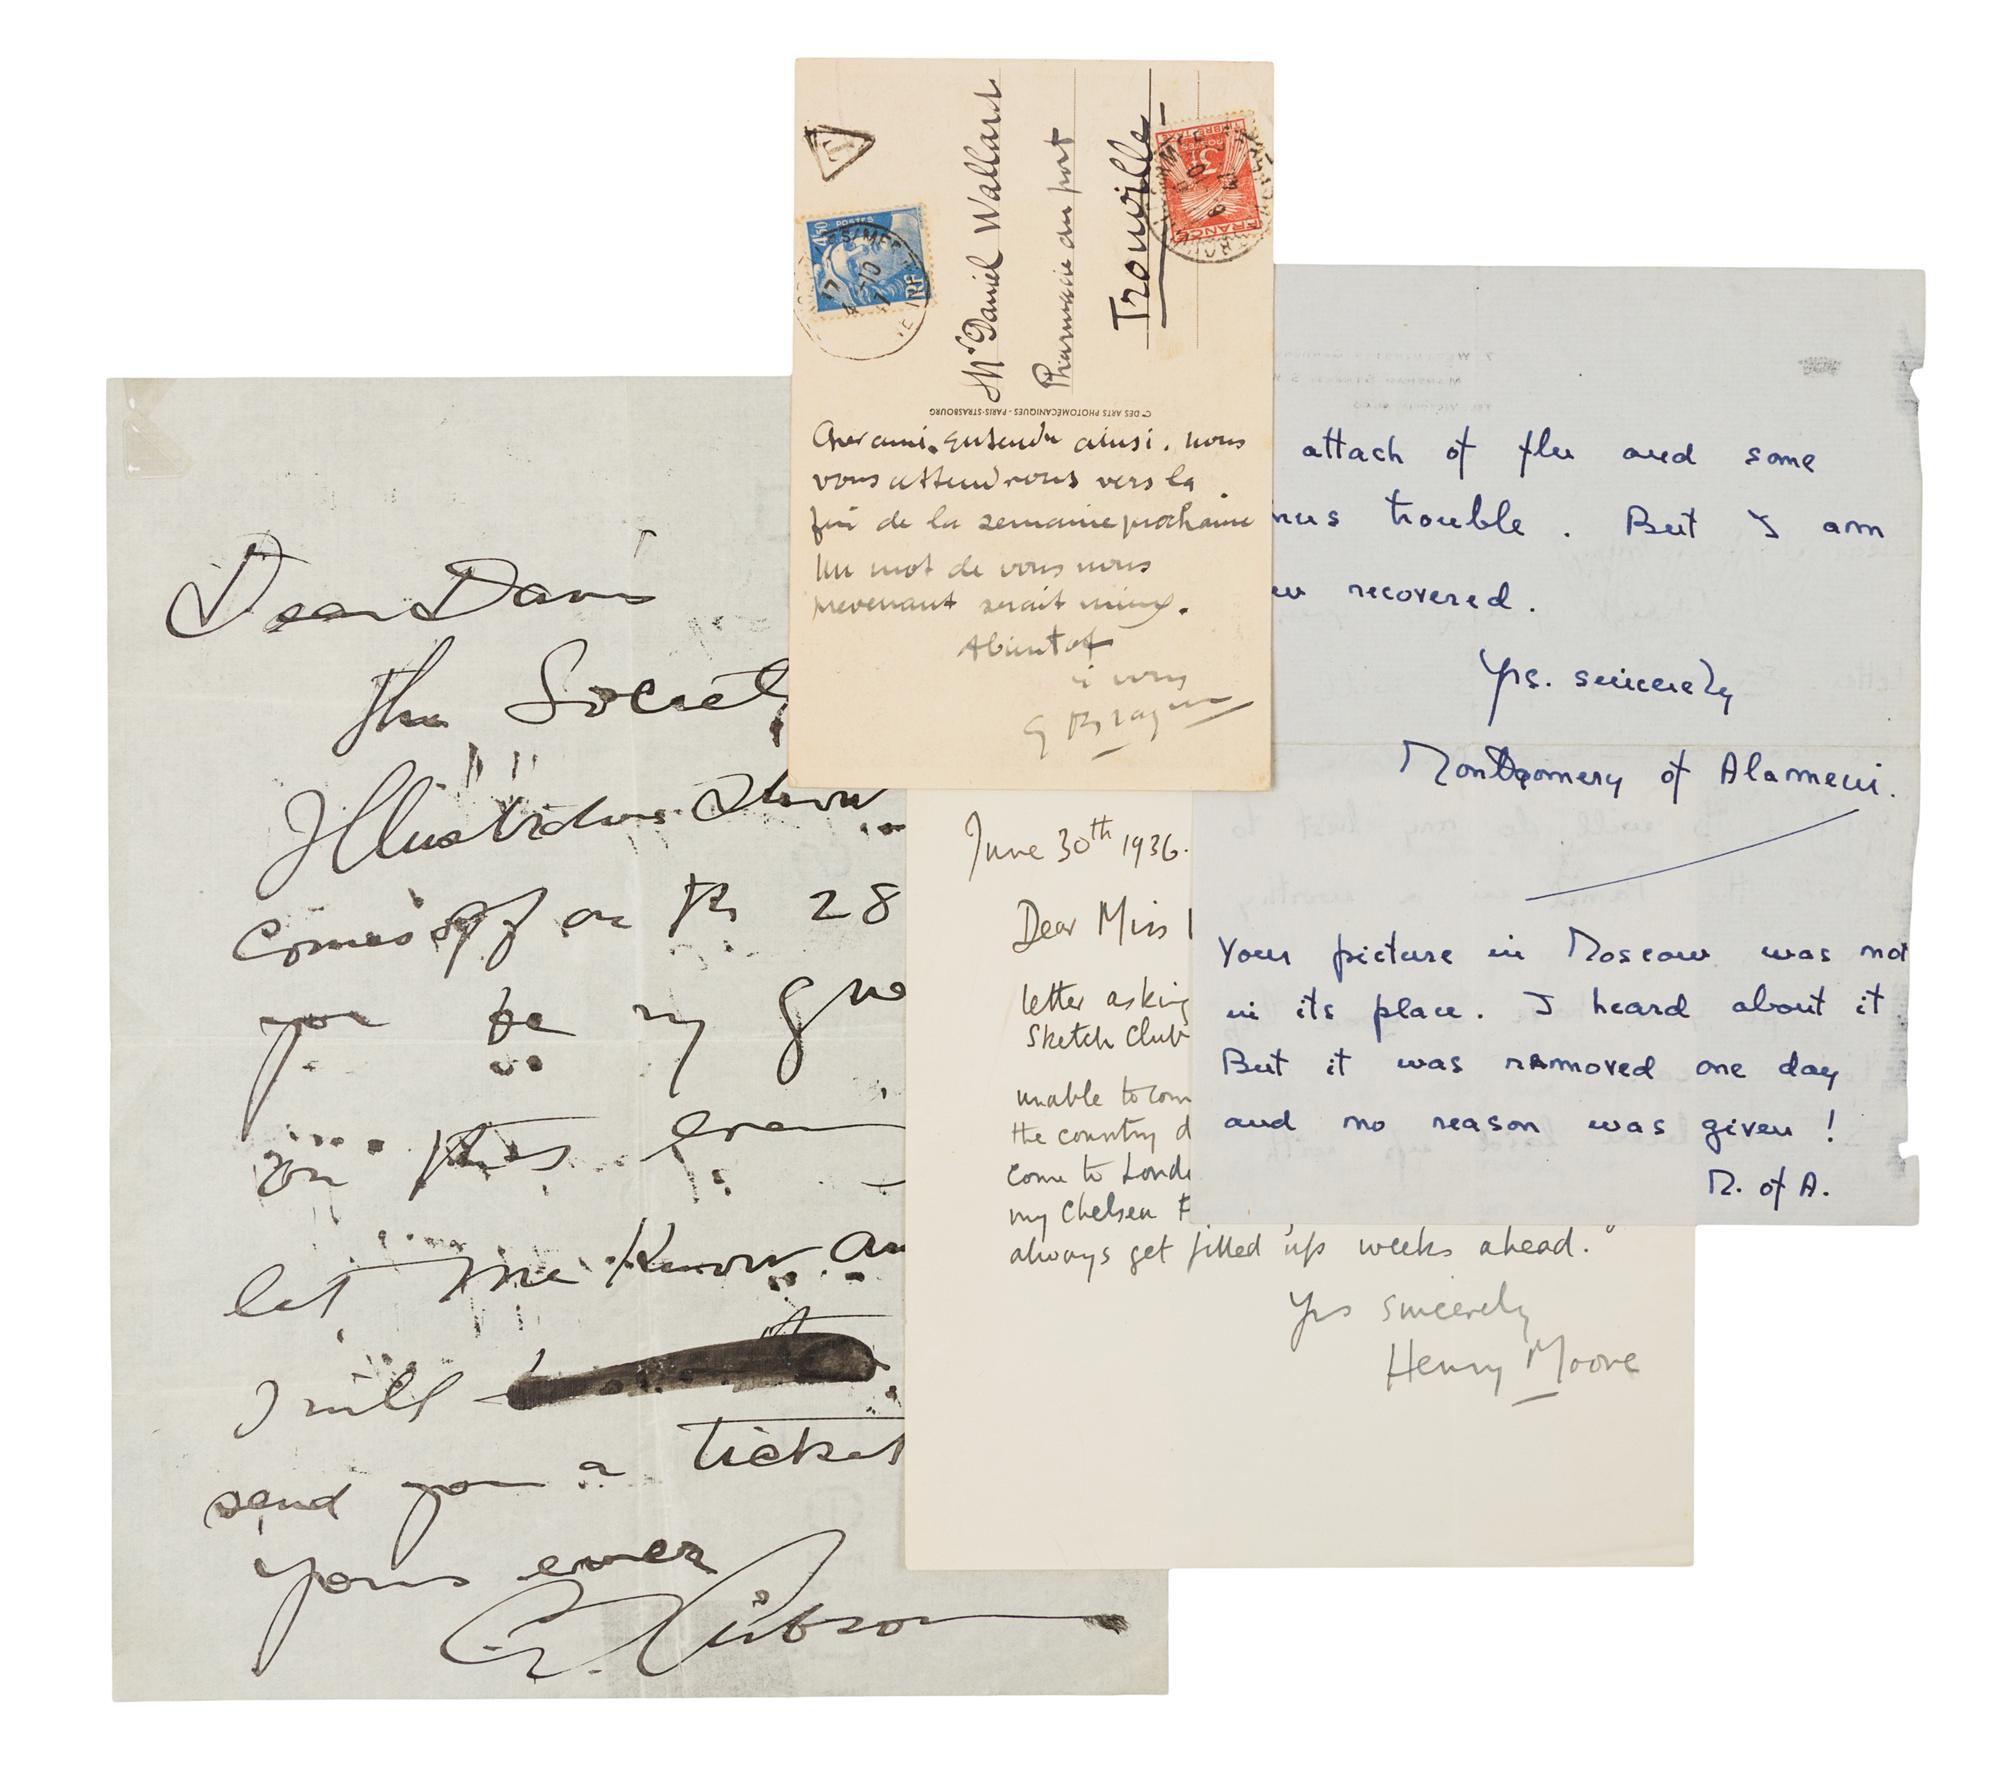 Dear Davis
the Societ
Illustrators Show
comes off on the 28
you be my gue
on this eveni
let me know an
I will
send you a ticket
yours ever
C. Gibson
T
4F50
POSTES
RF
Mr Daniel Wallard
Pharmacie du port
Trouville
TIMBRE TAXE
POSTES
3F
FRANCE
Cie DES ARTS PHOTOMÉCANIQUES - PARIS-STRASBOURG
Cher ami. Entendu ainsi. nous
vous attendrons vers la
fin de la semaine prochaine
Un mot de vous nous
prevenant serait mieux.
Abientot
à vous
G Braque
June 30th 1936.
Dear Miss
letter asking
Sketch Club
unable to com
the country d
come to Londo
my Chelsea
always get filled up weeks ahead.
Yrs sincerely
Henry Moore
attack of flu and some
nus trouble. But I am
w recovered.
Yrs. sincerely
Montgomery of Alamein.
Your picture in Moscow was not
in its place. I heard about it
But it was removed one day
and no reason was given!
M. of A.